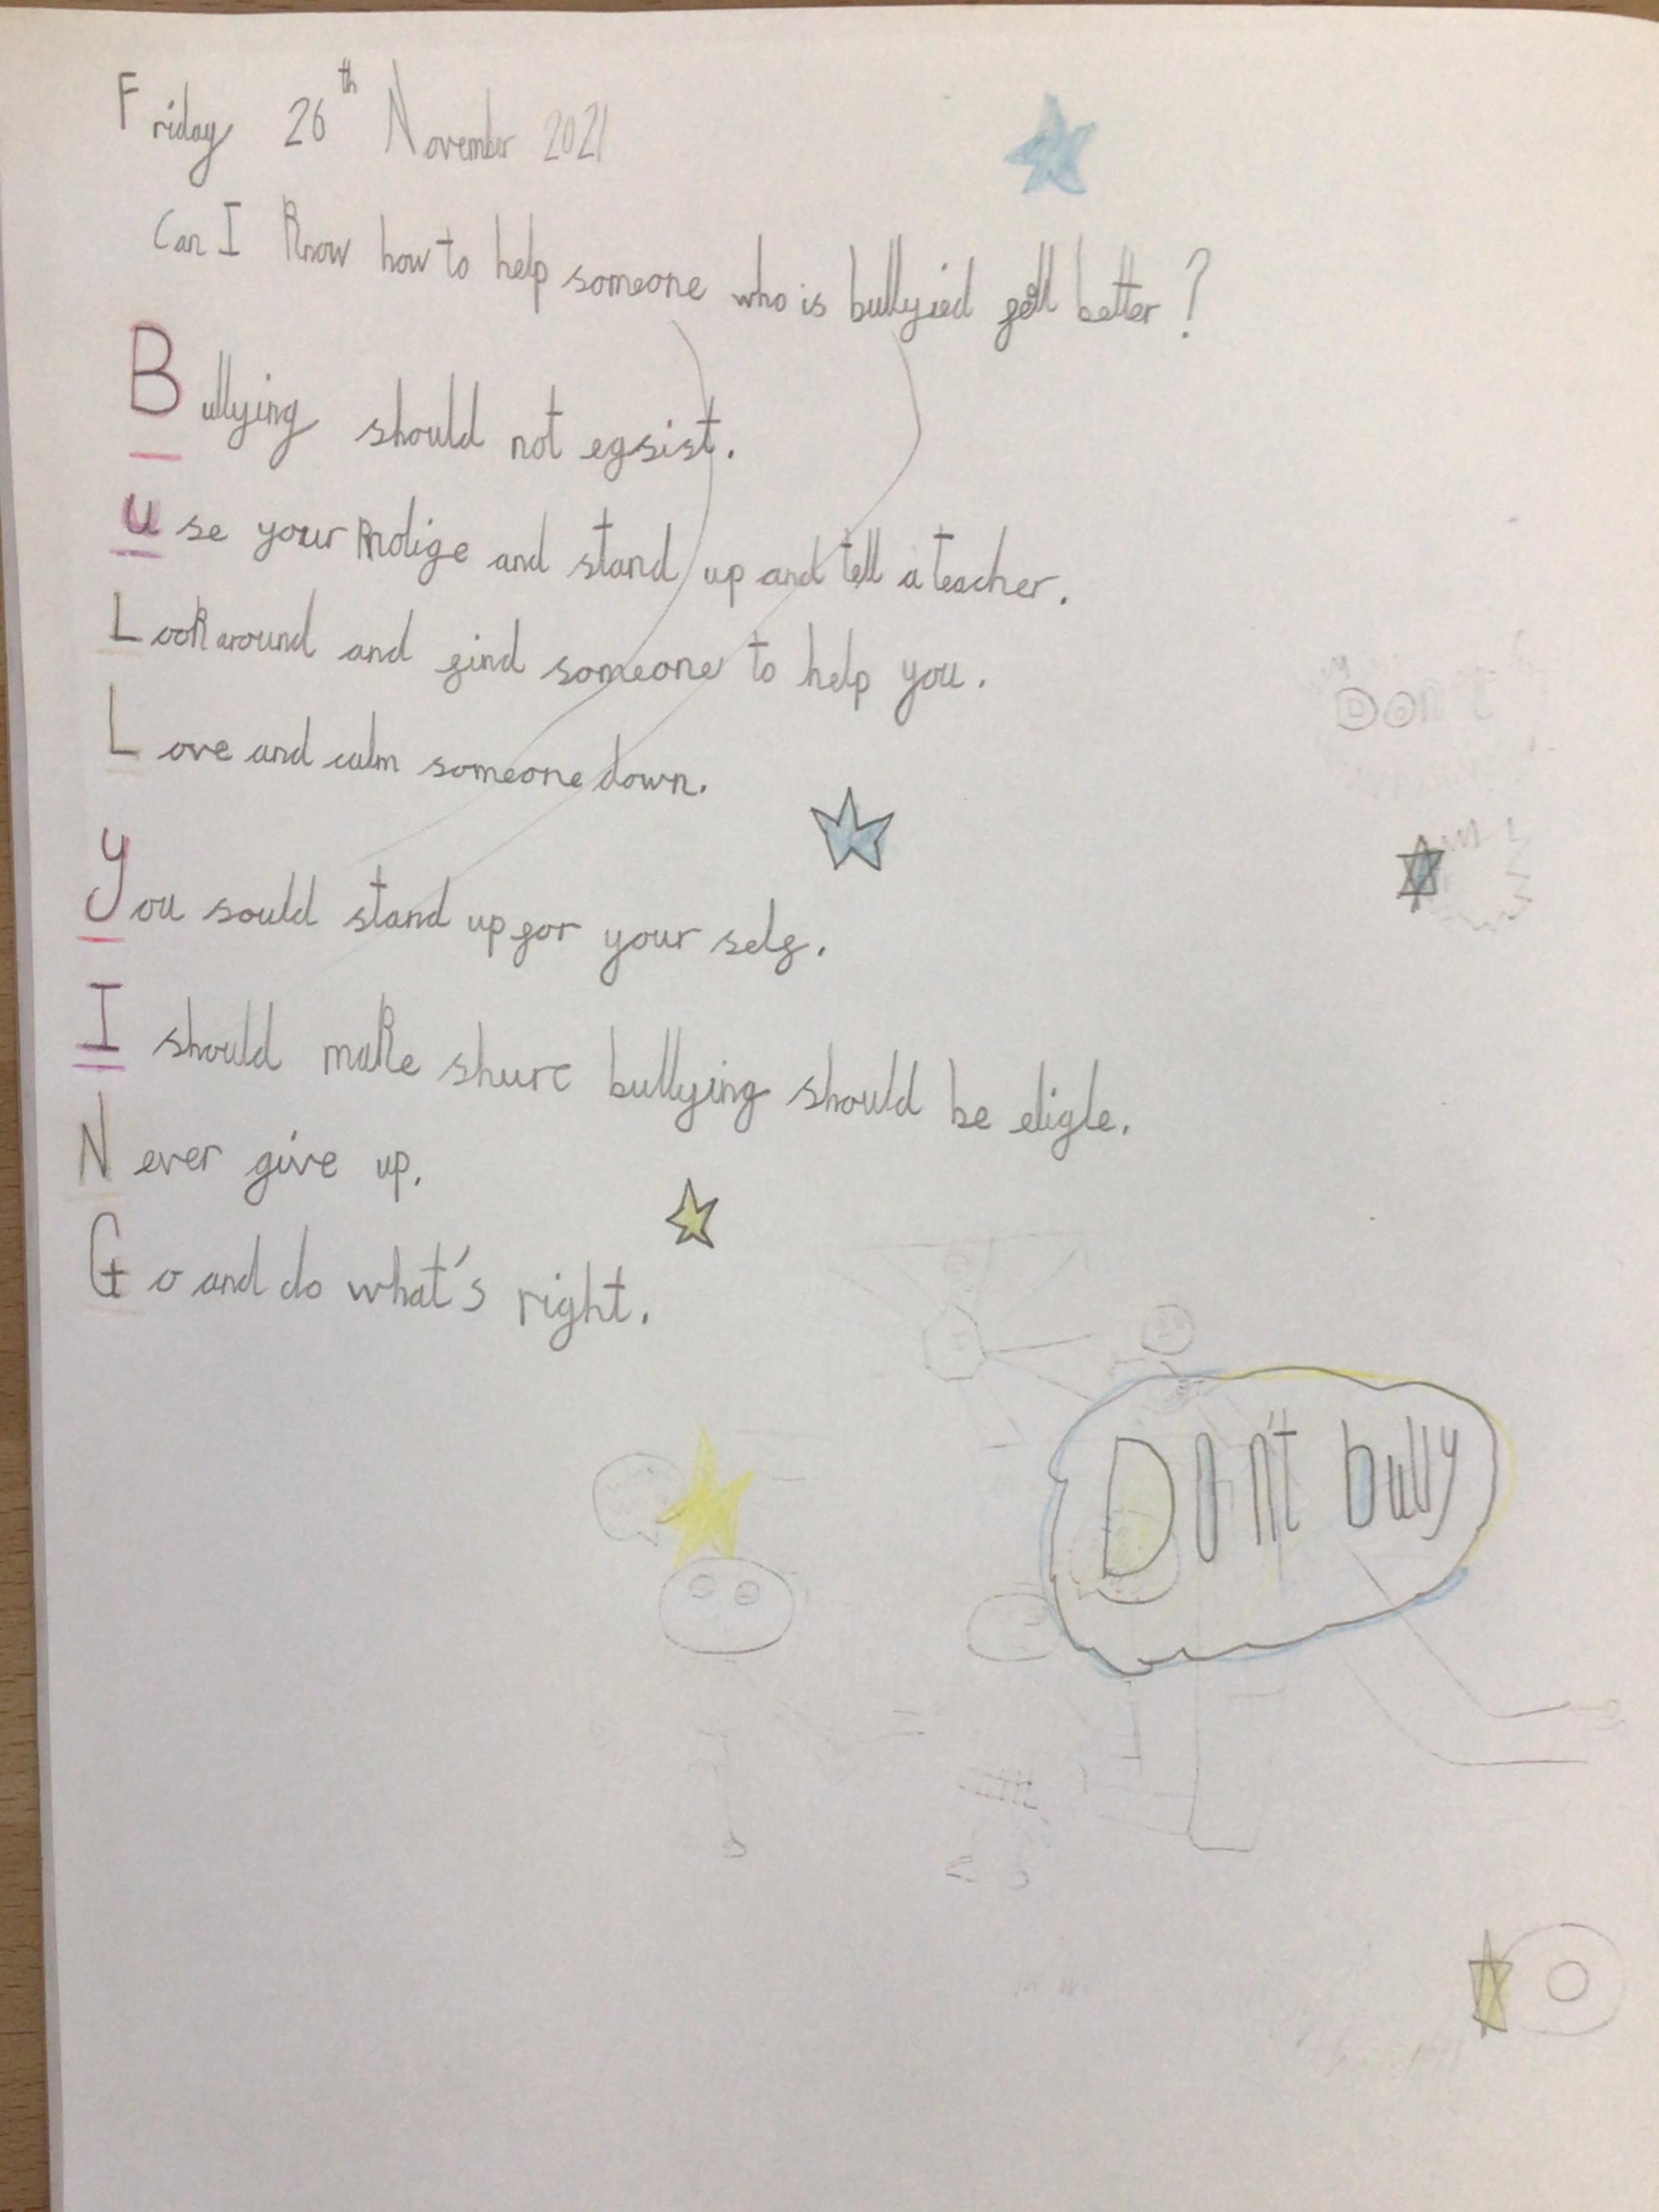 Friday 26th November 2021
Can I Know how to help someone who is bullyied gell better?
Bullying should not egsist.
use your Knolige and stand up and tell a teacher.
Look around and find someone to help you.
Love and calm someone down.
You sould stand up for your self.
I should make shure bullying should be eligle.
Never give up.
Go and do what's right.
Don't
Don't bully